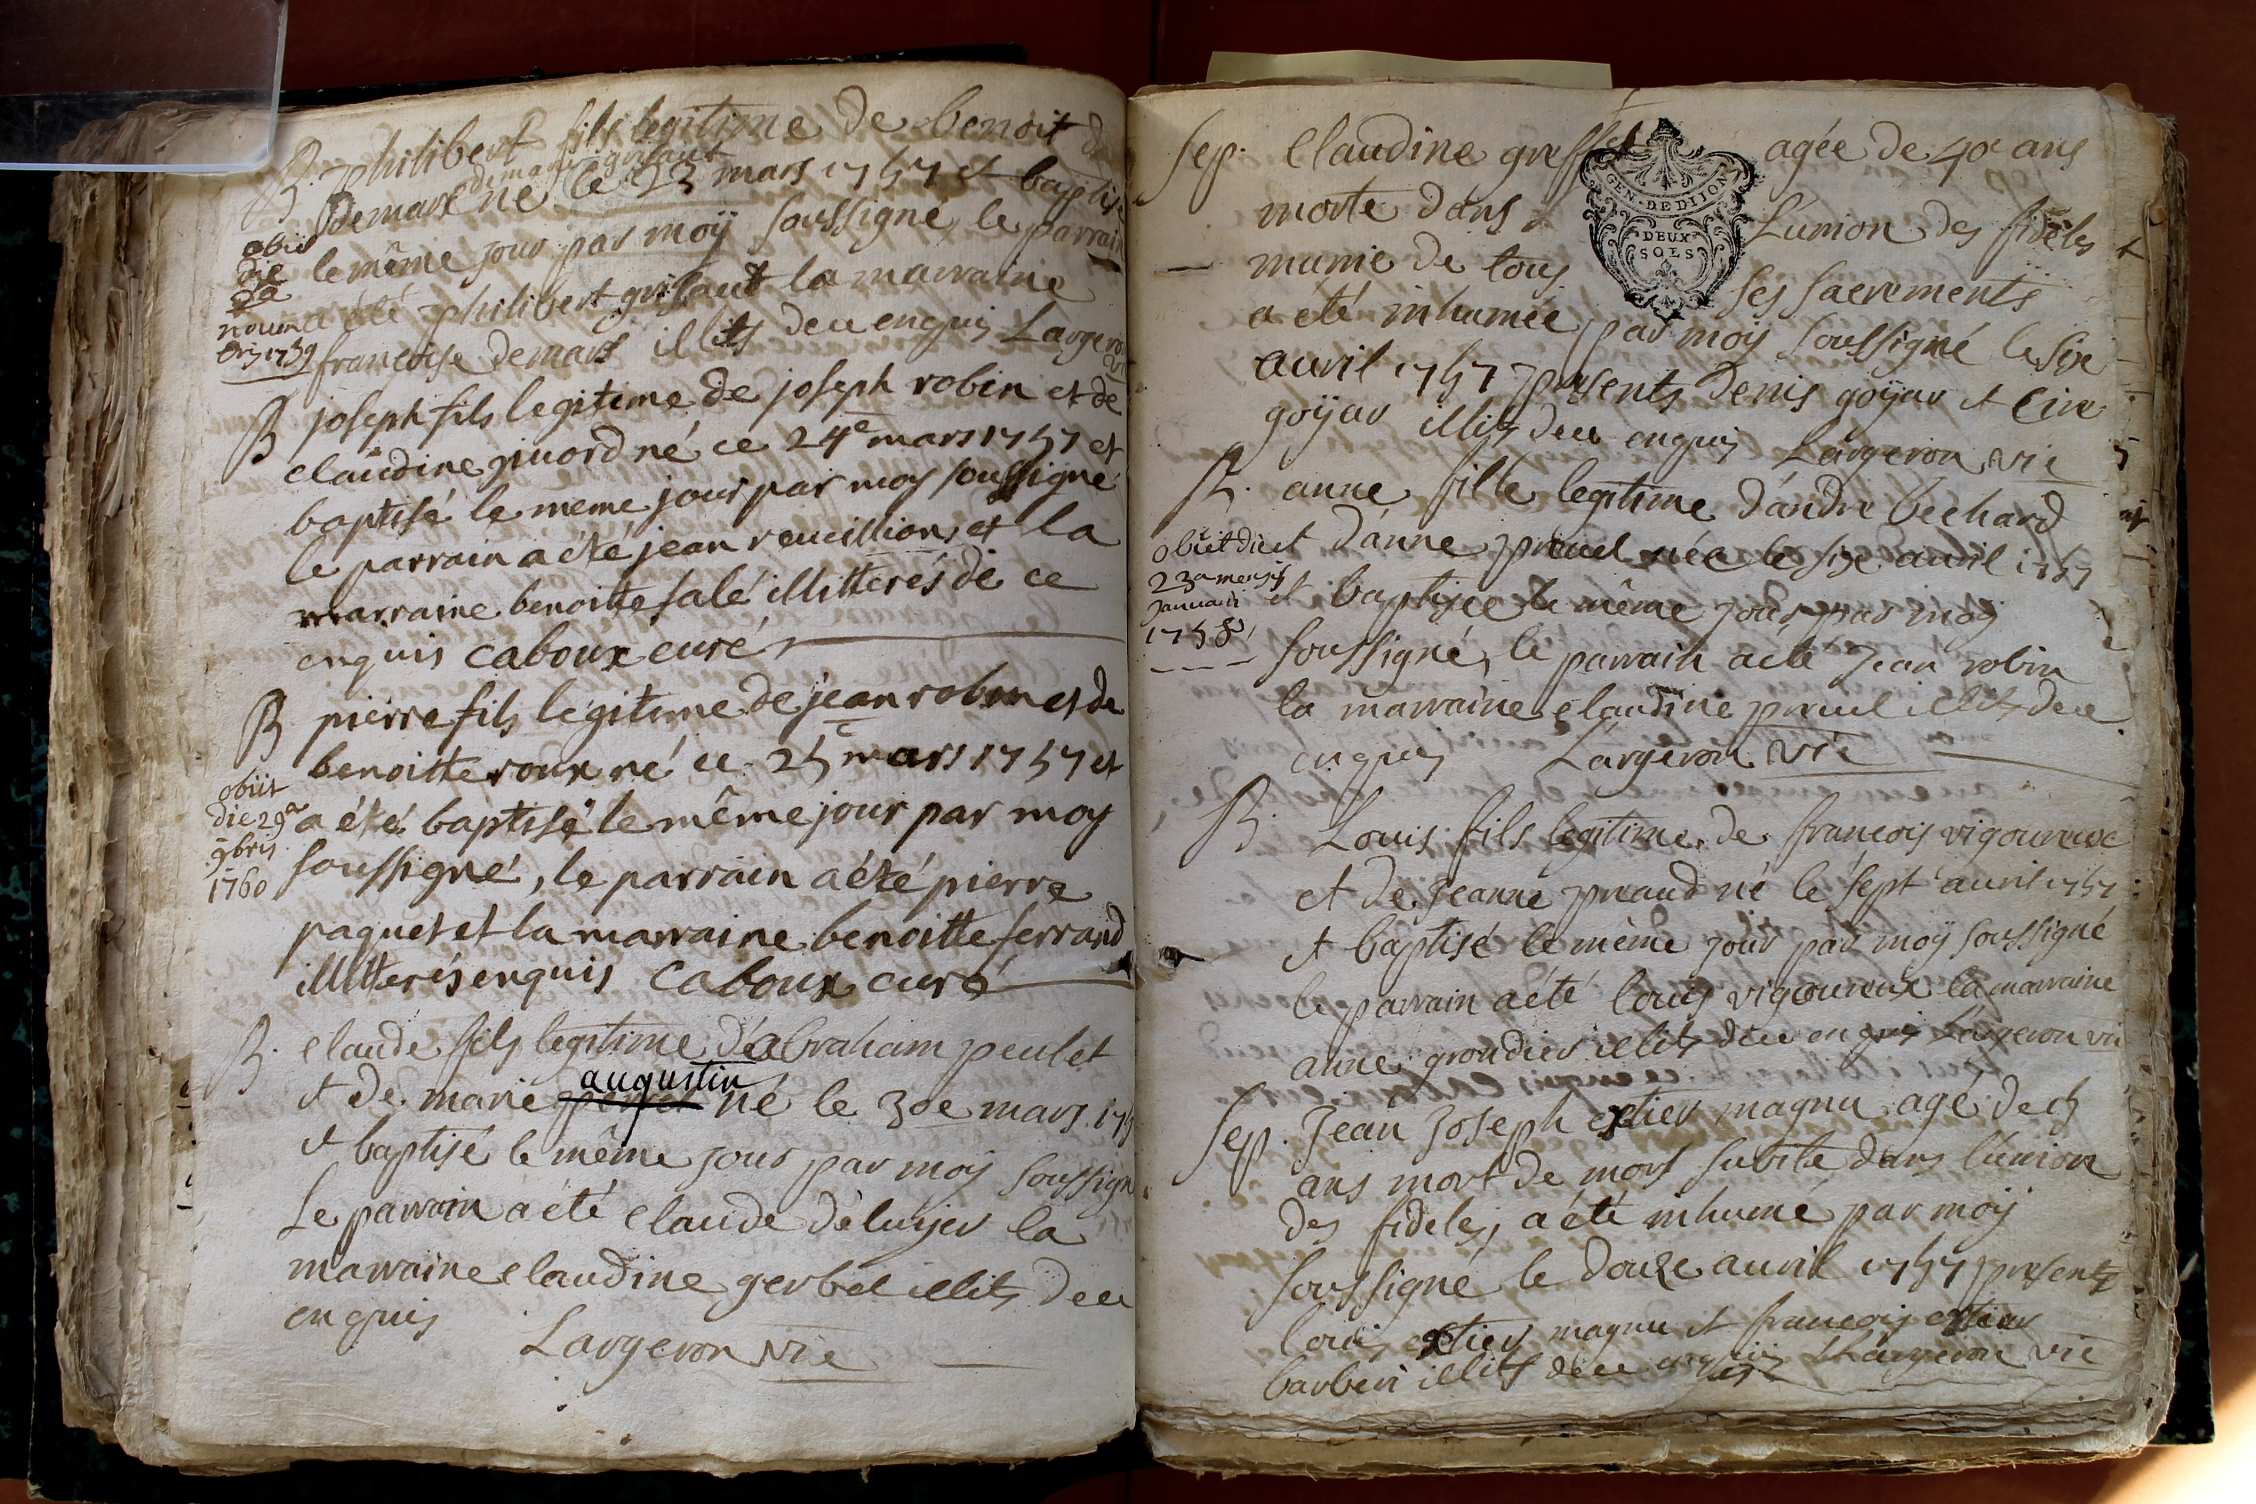 B. philibert fils legitime de benoit
demars né le 23 mars 1757 et baptisé
le même jour par moÿ soussigné, le parrain
a été philibert grisaut la marraine
françoise demars illits de ce enquis Largeron
obiit
die
novem
bris 1759
B joseph fils legitime de joseph robin et de
claudine ginord né ce 24e mars 1757 et
baptisé le meme jour par moy soussigné
le parrain a été jean reveillion et la
marraine benoitte salé illitterés de ce
enquis caboux curé
B pierre fils legitime de jean robin et de
benoitte roux né ce 25 mars 1757 et
a été baptisé le même jour par moy
soussigné, le parrain a été pierre
paquet et la marraine benoitte ferrand
illitterés enquis caboux curé
obiit
die 29a
9bris
1760
B. claude fils legitime d'abraham peulet
et de marie augustin né le 30e mars 175
et baptisé le même jour par moÿ soussigné
Le parrain a été claude délurjer la
marraine claudine gerbet illits de ce
enquis Largeron vic
Sep. Claudine greffet agée de 40e ans
morte dans L'union des fideles
munie de tous ses sacrements
a été inhumée par moÿ soussigné le six
avril 1757 presents denis goÿar et
goÿar illits de ce enquis Largeron vic
GEN. DE DIJON
DEUX
SOLS
B. anne fille legitime d'andré bechard
et d'anne preuel née le six avril 1757
et baptisée le même jour par moÿ
soussigné, le parrain a été Jean robin
la marraine claudine preuel illits de ce
enquis Largeron vic
obiit die
23a mensis
januarii
1758
B. Louis fils legitime de françois vigoureux
et de Jeanne preaud né le sept avril 1757
et baptisé le même jour par moÿ soussigné
le parrain a été louis vigoureux la marraine
anne grondier illits de ce enquis Largeron vic
Sep. Jean Joseph extier magnu agé de 5
ans mort de mort subite dans l'union
des fideles, a été inhumé par moÿ
soussigné le douze avril 1757 presents
louis extier magnu et françois extier
barbier illits de ce enquis Largeron vic